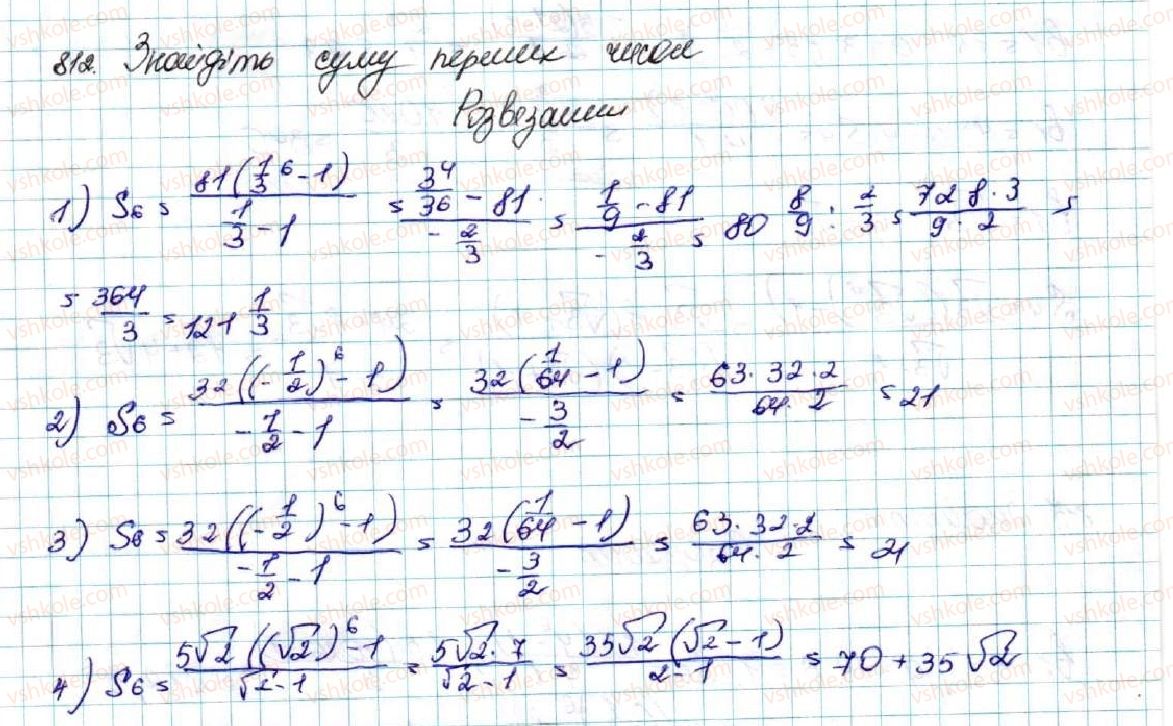 812. Знайдіть суму перших чисел
Розвезанни
1) S₆ = (81(1/3⁶ - 1))/(1/3 - 1) = (3⁴/3⁶ - 81)/(-2/3) = (1/9 - 81)/(-2/3) = 80 8/9 : 2/3 = (728·3)/(9·2) =
= 364/3 = 121 1/3
2) S₆ = (32((-1/2)⁶ - 1))/(-1/2 - 1) = (32(1/64 - 1))/(-3/2) = (63·32·2)/(64·2) = 21
3) S₆ = (32((-1/2)⁶ - 1))/(-1/2 - 1) = (32(1/64 - 1))/(-3/2) = (63·32·2)/(64·2) = 21
4) S₆ = (5√2((√2)⁶ - 1)/(√2 - 1) = (5√2·7)/(√2 - 1) = (35√2(√2 - 1))/(2 - 1) = 70 + 35√2